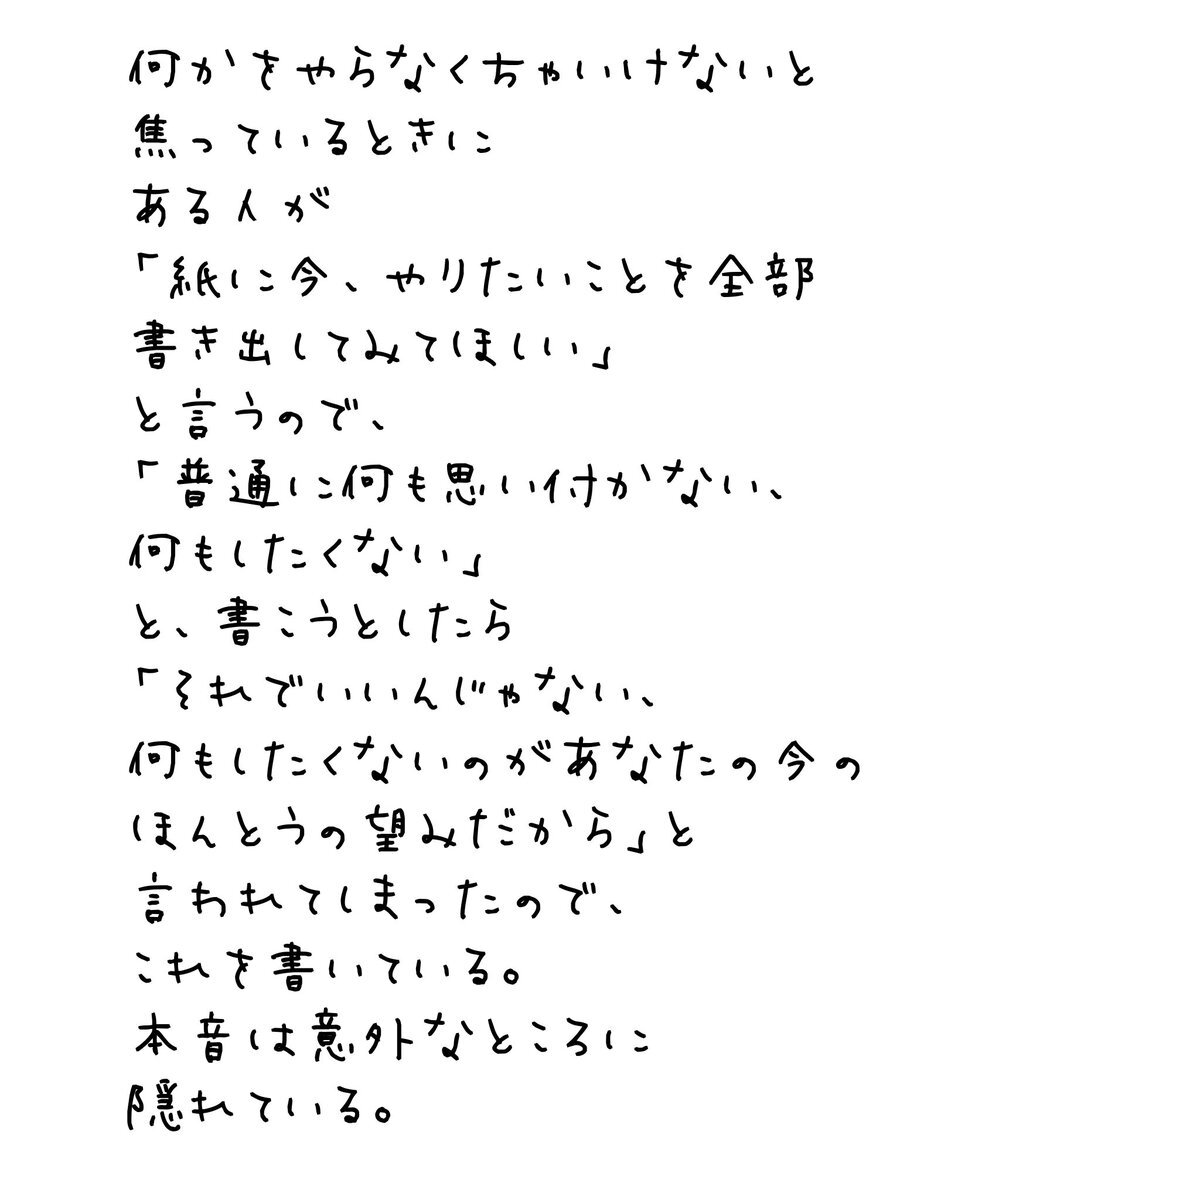 何かをやらなくちゃいけないと
焦っているときに
ある人が
「紙に今、やりたいことを全部
書き出してみてほしい」
と言うので、
「普通に何も思い付かない、
何もしたくない」
と、書こうとしたら
「それでいいんじゃない、
何もしたくないのがあなたの今の
ほんとうの望みだから」と
言われてしまったので、
これを書いている。
本音は意外なところに
隠れている。